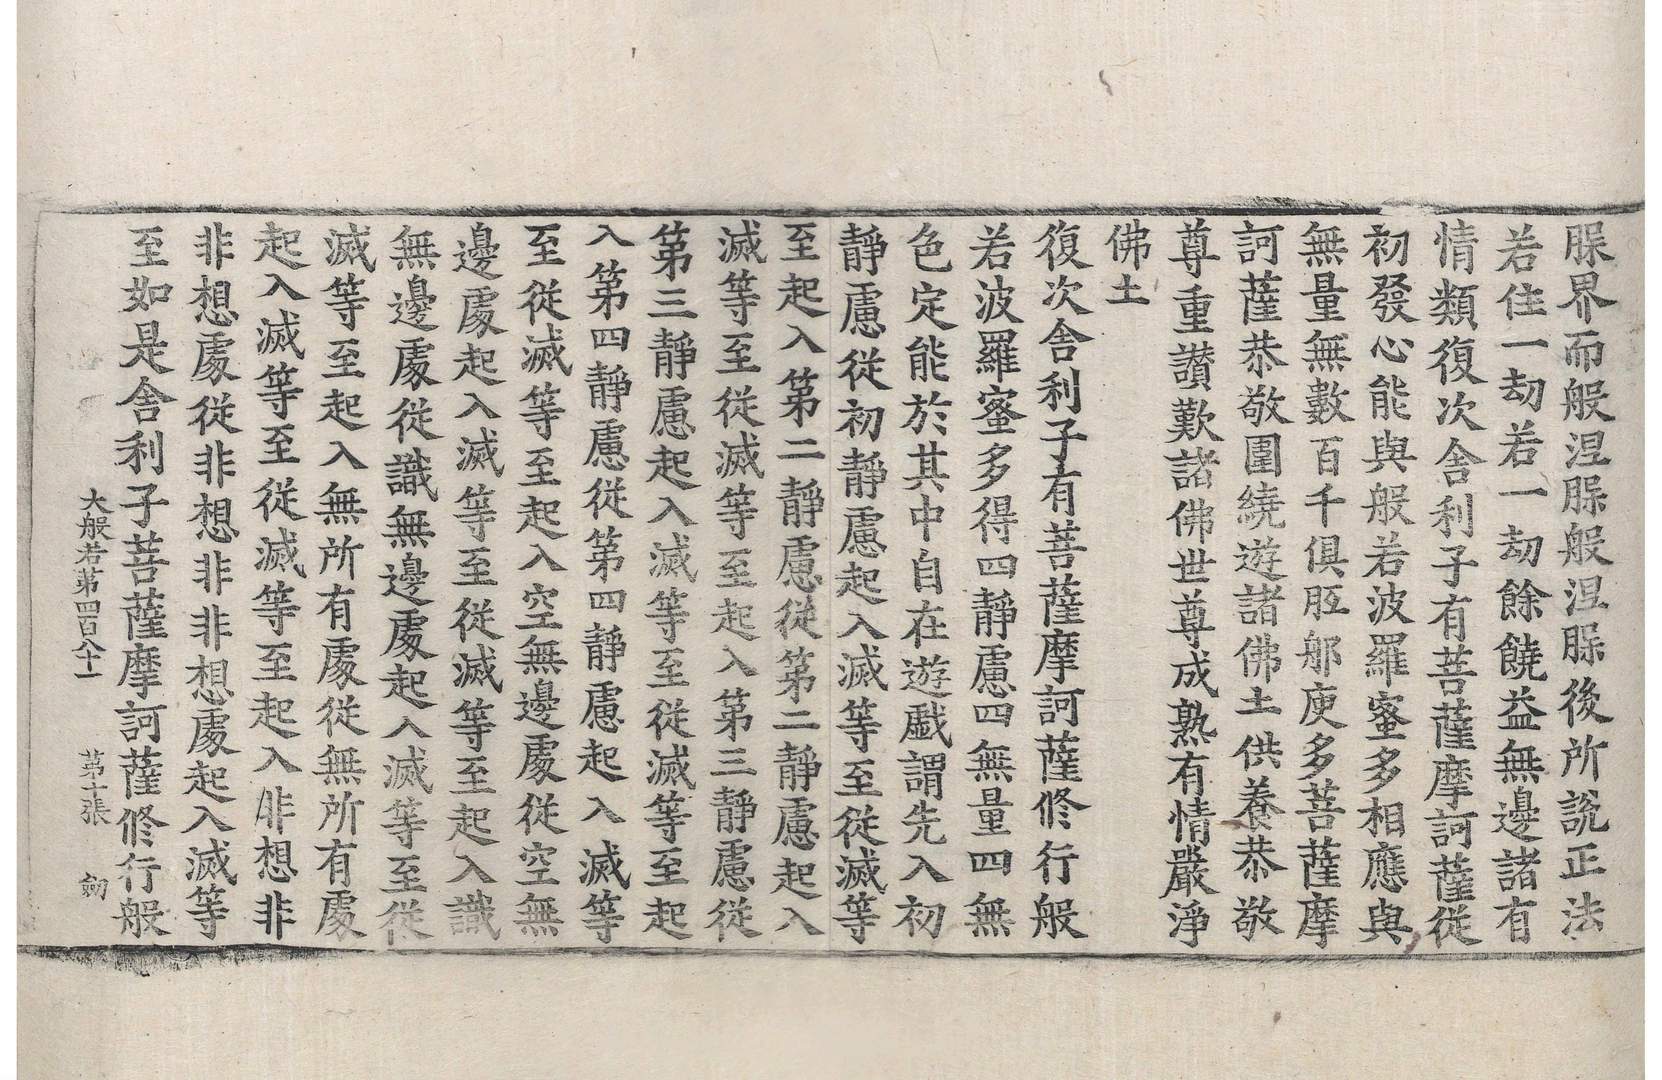 脲界而般涅脲般涅脲後所說正法
若住一劫若一劫餘饒益無邊諸有
情類復次舍利子有菩薩摩訶薩從
初發心能與般若波羅蜜多相應與
無量無數百千俱胝那庾多菩薩摩
訶薩恭敬圍繞遊諸佛土供養恭敬
尊重讃歎諸佛世尊成熟有情嚴淨
佛土
復次舍利子有菩薩摩訶薩修行般
若波羅蜜多得四靜慮四無量四無
色定能於其中自在遊戲謂先入初
靜慮從初靜慮起入滅等至從滅等
至起入第二靜慮從第二靜慮起入
滅等至從滅等至起入第三靜慮從
第三靜慮起入滅等至從滅等至起
入第四靜慮從第四靜慮起入滅等
至從滅等至起入空無邊處從空無
邊處起入滅等至從滅等至起入識
無邊處從識無邊處起入滅等至從
滅等至起入無所有處從無所有處
起入滅等至從滅等至起入非想非
非想處從非想非非想處起入滅等
至如是舍利子菩薩摩訶薩修行般
大般若第四百八十一 第十張 劒